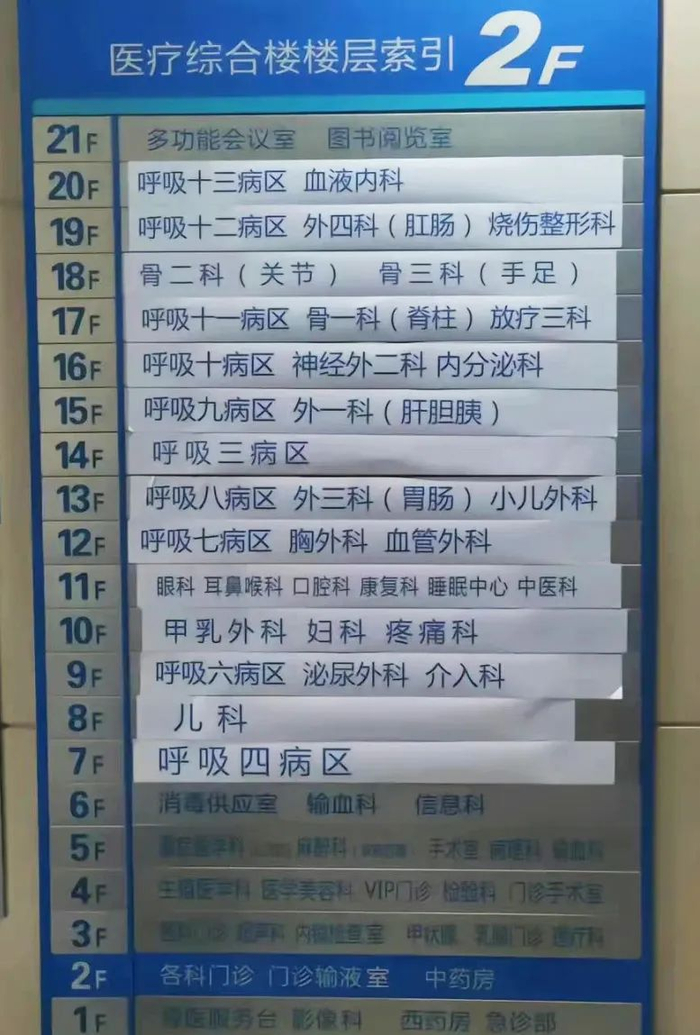 医疗综合楼楼层索引 2F
21F 多功能会议室 图书阅览室
20F 呼吸十三病区 血液内科
19F 呼吸十二病区 外四科（肛肠） 烧伤整形科
18F 骨二科（关节） 骨三科（手足）
17F 呼吸十一病区 骨一科（脊柱） 放疗三科
16F 呼吸十病区 神经外二科 内分泌科
15F 呼吸九病区 外一科（肝胆胰）
14F 呼吸三病区
13F 呼吸八病区 外三科（胃肠） 小儿外科
12F 呼吸七病区 胸外科 血管外科
11F 眼科 耳鼻喉科 口腔科 康复科 睡眠中心 中医科
10F 甲乳外科 妇科 疼痛科
9F 呼吸六病区 泌尿外科 介入科
8F 儿科
7F 呼吸四病区
6F 消毒供应室 输血科 信息科
5F 重症医学科 麻醉科 手术室 病理科 输血科
4F 生殖医学科 医学美容科 VIP门诊 检验科 门诊手术室
3F 超声科 内镜检查室 甲状腺 乳腺门诊 理疗科
2F 各科门诊 门诊输液室 中药房
1F 导医服务台 影像科 西药房 急诊部